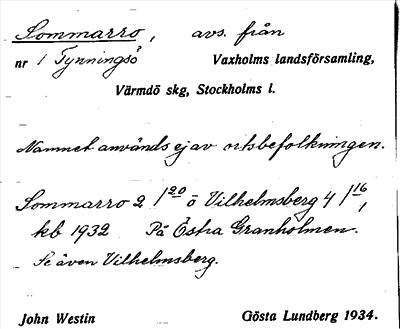 Sommarro, avs. från
nr 1 Tynningsö Vaxholms landsförsamling,
Värmdö skg, Stockholms l.
Namnet används ej av ortsbefolkningen.
Sommarro 2 1/20 ö Vilhelmsberg 4 1/16,
kb 1932 På Östra Granholmen.
Se även Vilhelmsberg.
John Westin Gösta Lundberg 1934.